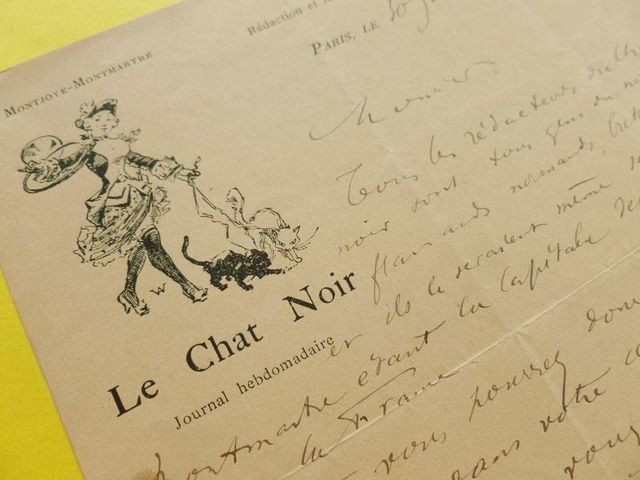 Rédaction et
MONTJOYE-MONTMARTRE
PARIS, LE
W
Le Chat Noir
Journal hebdomadaire
Monsieur,
Tous les rédacteurs du Chat
noir sont tous gens du
flamands normands,
et ils le seraient même
Montmartre étant la Capitale
de la France
vous pourrez
dans votre